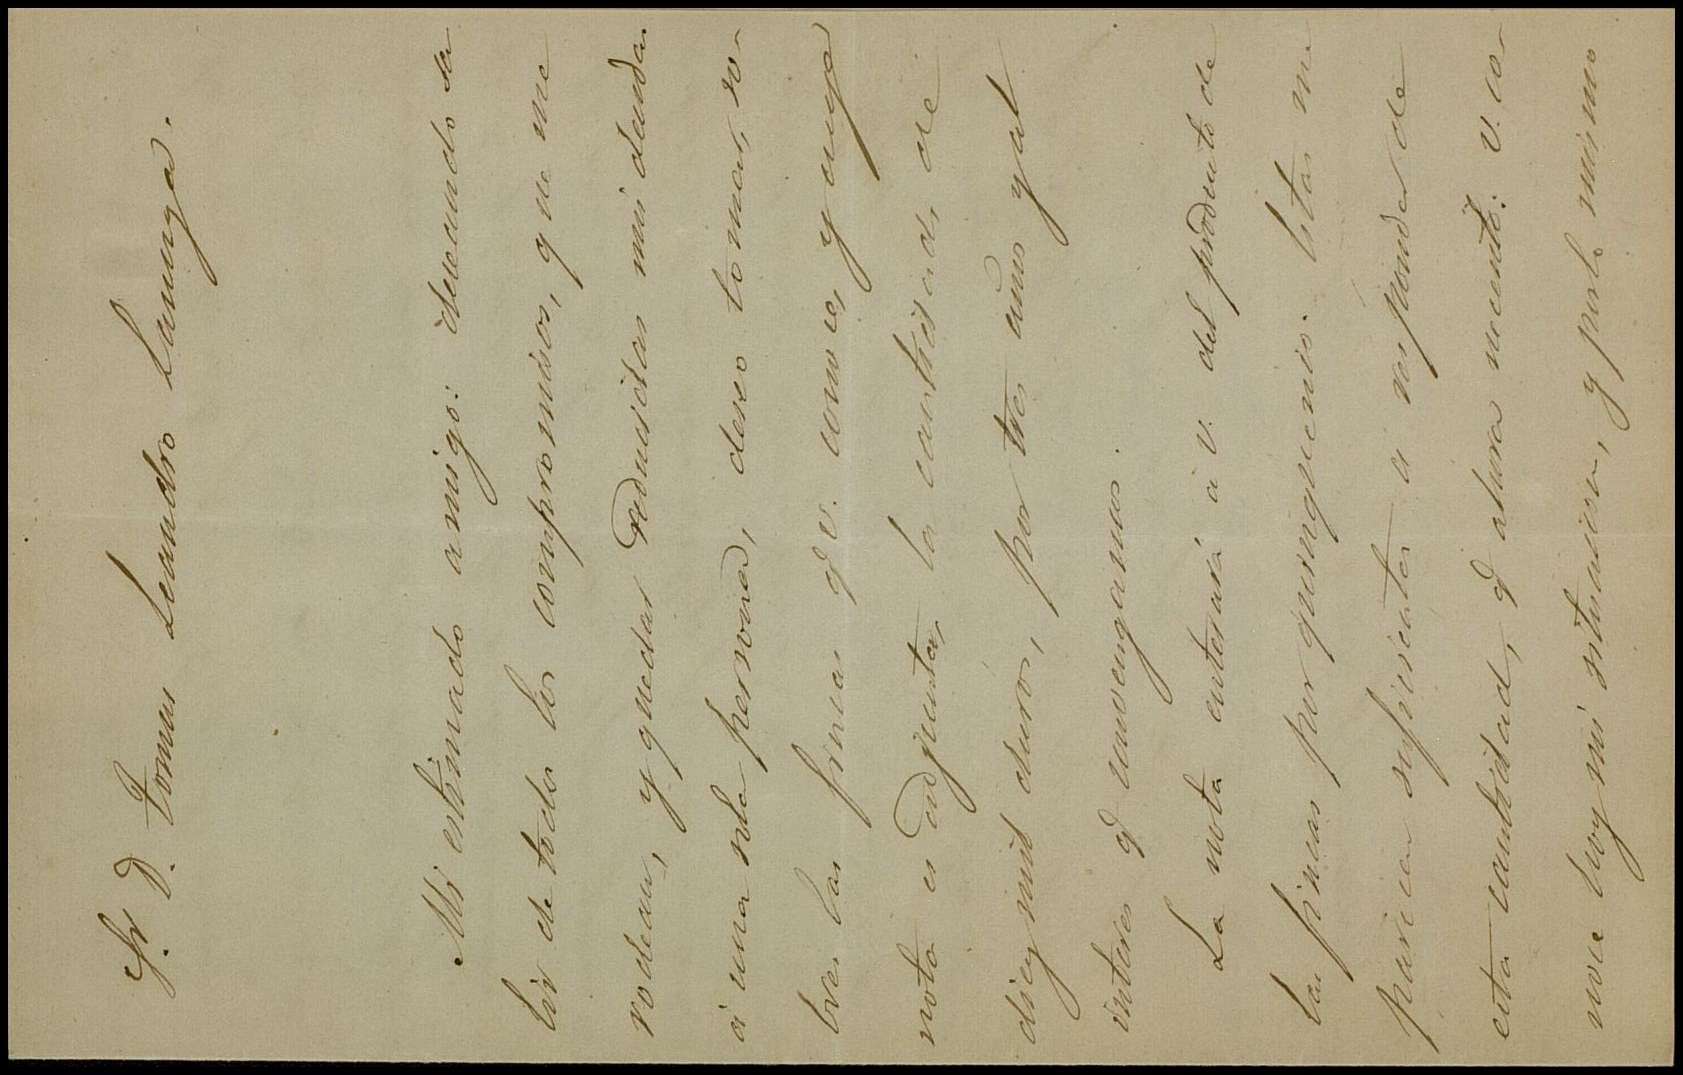 Sr. D. Tomas Leandro Camunga.
Mi estimado amigo: deseando sa
lir de todos los compromisos, que me
rodean, y quedar reducidas mis deudas
á una sola persona, deseo tomar, so-
bre las fincas q V. conoce, y cuya
nota es adjunta, la cantidad, de
diez mil duros, por tres años y al
interes q convengamos.
La nota enterará á V. del producto de
las fincas por quinquenio. Estas me
parecen suficientes á responder de
esta cantidad, q ahora necesito: V. co-
noce bien mi situacion, y por lo mismo